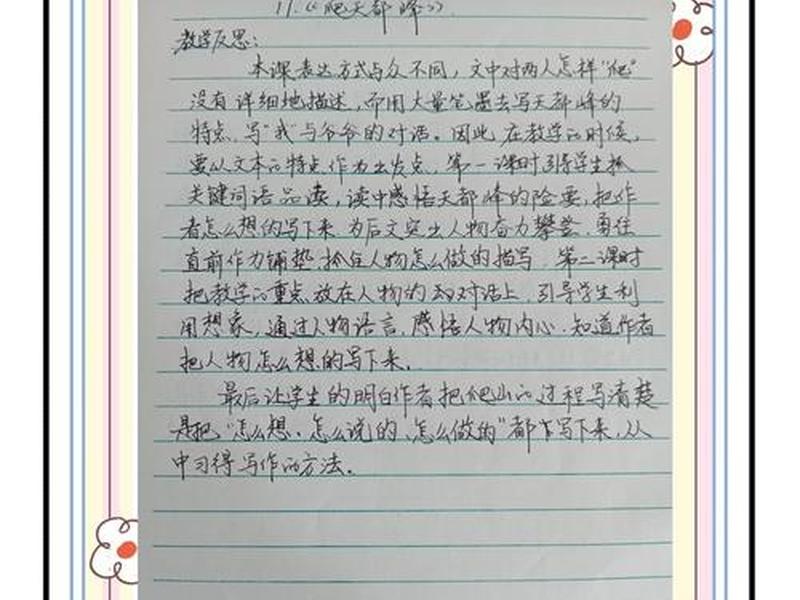 17.《爬天都峰》
教学反思：
本课表达方式与众不同，文中对两人怎样"爬"
没有详细地描述，而用大量笔墨去写天都峰的
特点，写"我"与爷爷的对话。因此，在教学的时候，
要以文本的特点作为出发点，第一课时引导学生抓
关键词语品读，读中感悟天都峰的险要，把作
者怎么想的写下来，为后文突出人物奋力攀登，勇往
直前作为铺垫，抓住人物怎么做的描写，第二课时
把教学的重点放在人物的对话上，引导学生利
用想象，通过人物语言，感悟人物内心，知道作者
把人物怎么想的写下来。
最后让学生的明白作者把爬山的过程写清楚
是把"怎么想、怎么说的、怎么做的"都写下来，从
中习得写作的方法。